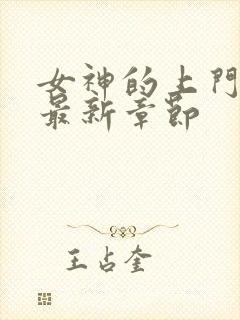 女神的上門
最新章節
王占奎